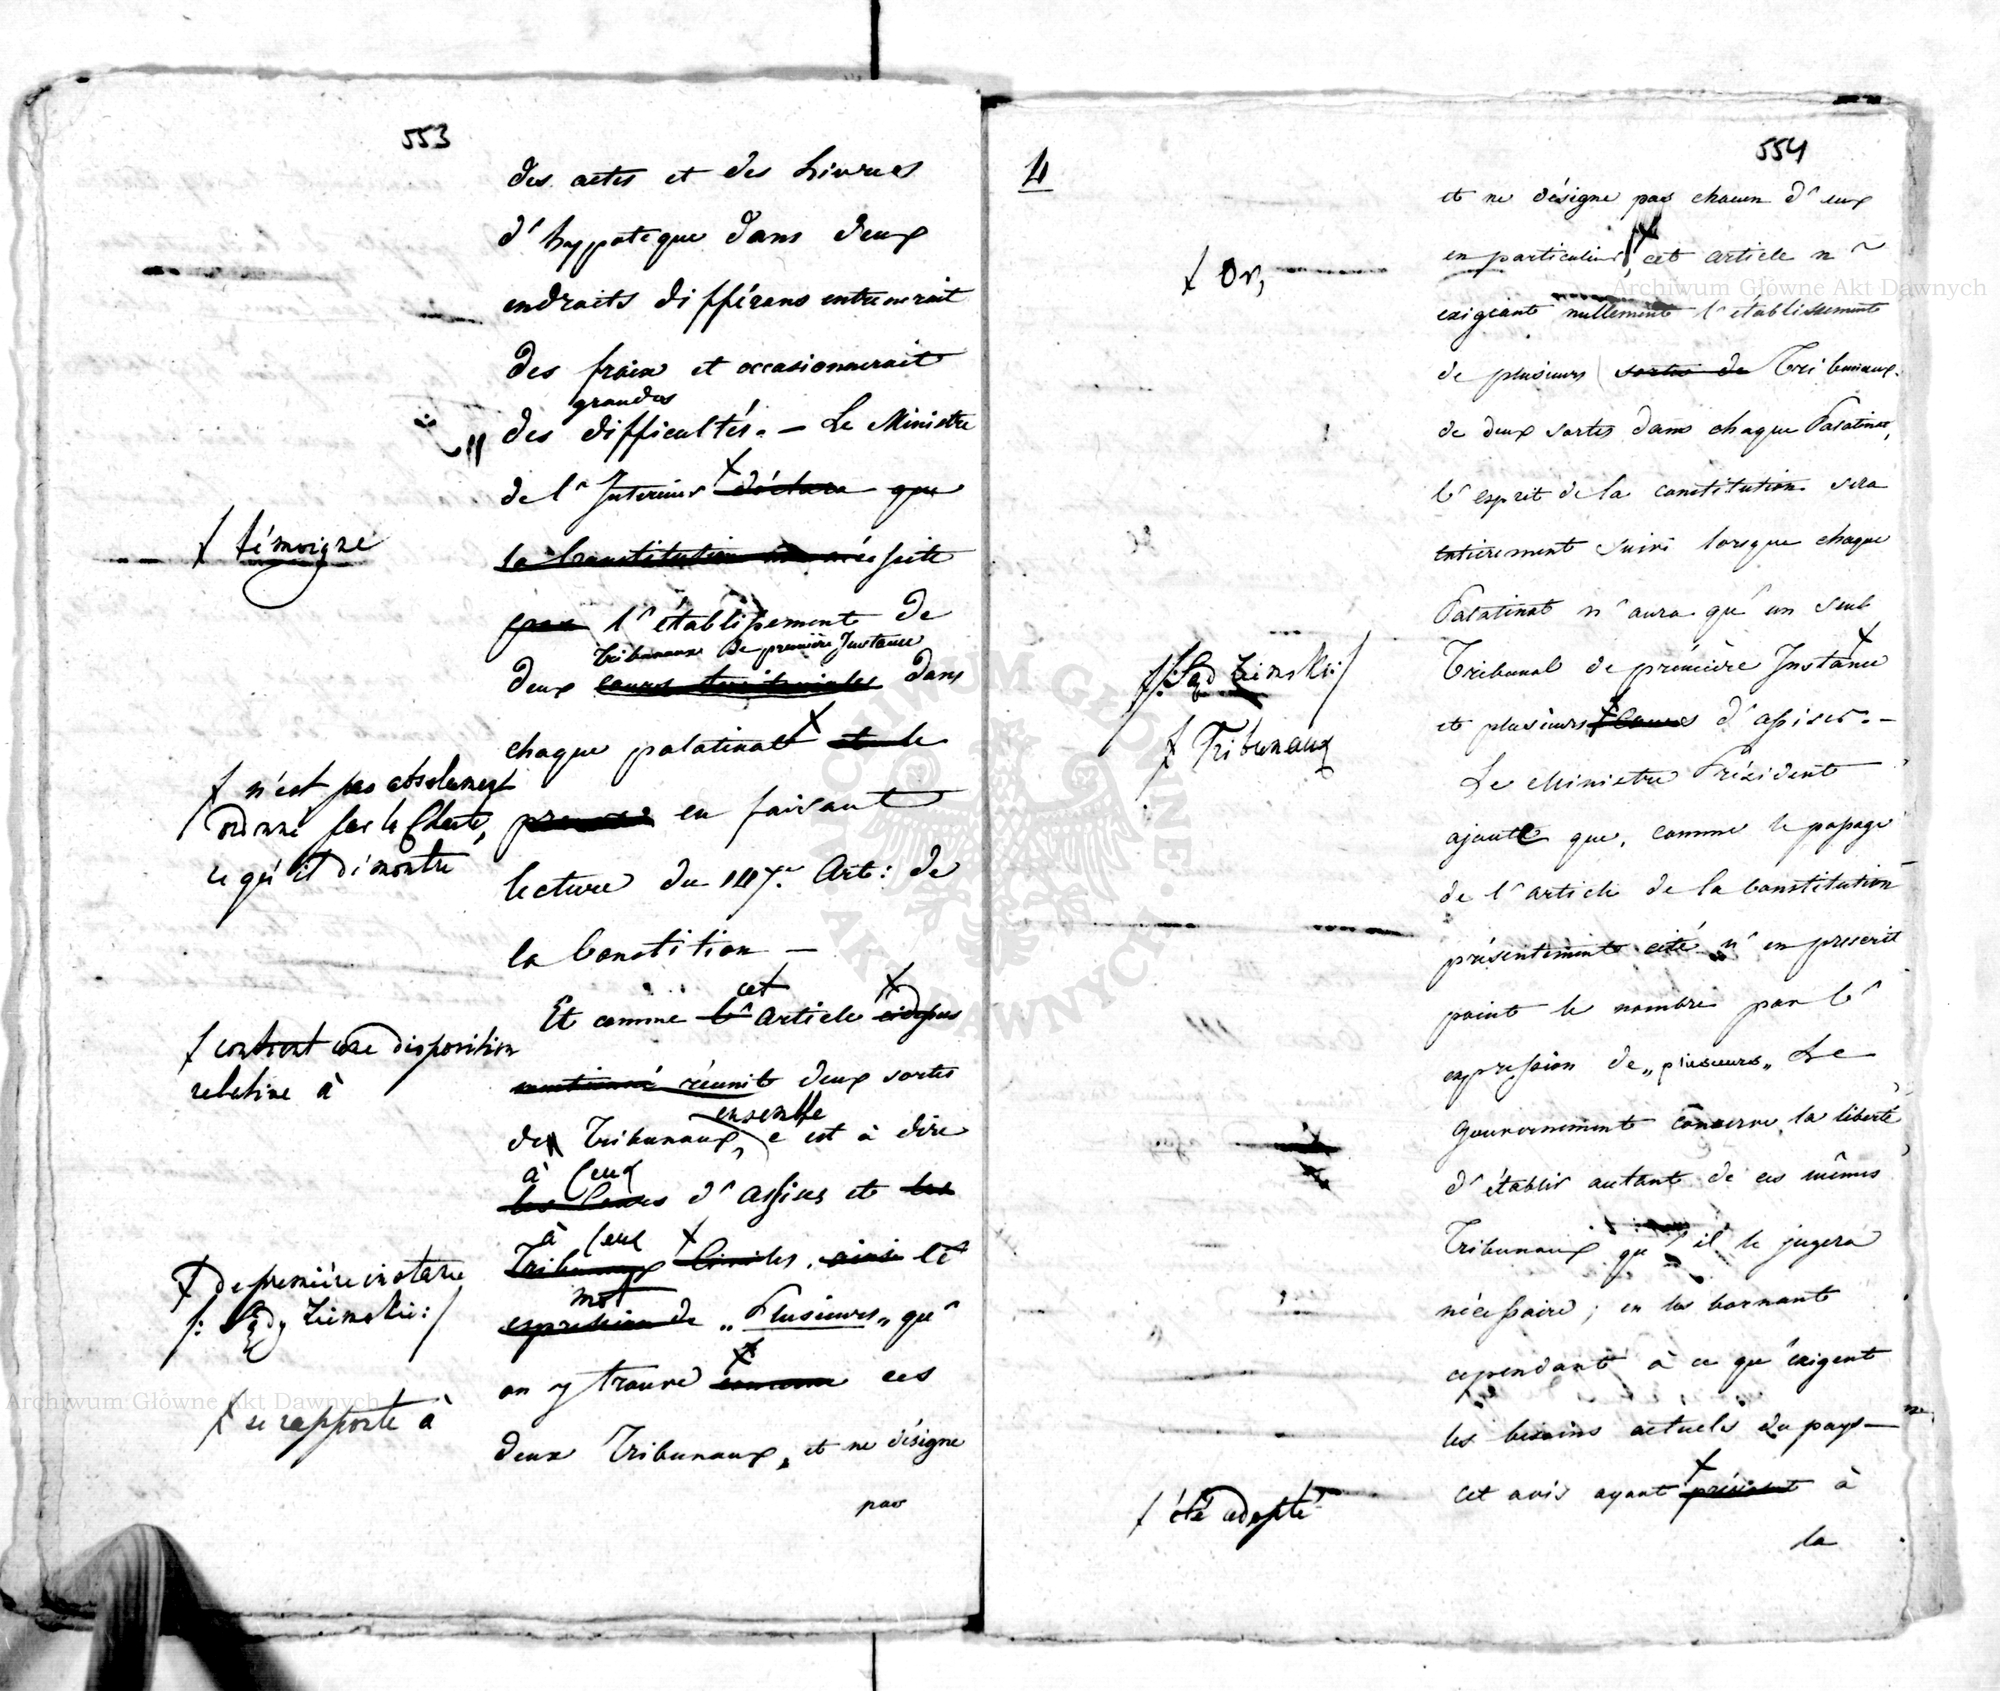 553
des actes et des Livres
d'hyppoteque dans deux
endroits différens entrenerait
des fraix et occasionnerait
grandes
des difficultés. — Le Ministre
de l'Interieur déclara que
ƒ témoigne
la Constitution
l'établissement de
Tribunaux de première Instance
deux dans
chaque palatinat et le
ƒ n'est pas absolument
ordonné par la Charte,
ce qu'il démontre
en faisant
lecture du 147e Art: de
la Constition —
cet
Et comme l'article cidessus
ƒ contient une disposition
relative à
mentionné réunit deux sortes
ensemble
des Tribunaux, c'est à dire
à Ceux
les Cours d'assises et les
à ceux
Tribunaux Civiles, ainsi le
ƒ de premiére instance
/: Sądy Ziemskie :/
mot
expression de „Plusieurs„ qu'
on y trouve concerne ces
ƒ se rapporte à
deux Tribunaux, et ne désigne
pas
4
554
et ne désigne pas chacun d'eux
en particulier, cet article n'
ƒ Or,
exigeant nullement l'établissement
de plusieurs sortes de Tribunaux
de deux sortes dans chaque Palatinat,
l'esprit de la constitution sera
entièrement suivi lorsque chaque
Palatinat n'aura qu'un seul
Tribunal de prémière Instance
ƒ/: Sąd Ziemski :/
et plusieurs Cours d'assises. —
ƒ Tribunaux
Le Ministre Président
ajoute que, comme le passage
de l'article de la Constitution
présentement cité n'en prescrit
point le nombre par l'
expression de „plusieurs„ Le
Gouvernement conserve la liberté
d'établir autant de ces mêmes
Tribunaux qu'il le jugera
nécessaire; en les bornant
cependant à ce qu'exigent
les besoins actuels du pays —
Cet avis ayant présenté à
ƒ été adopté
la